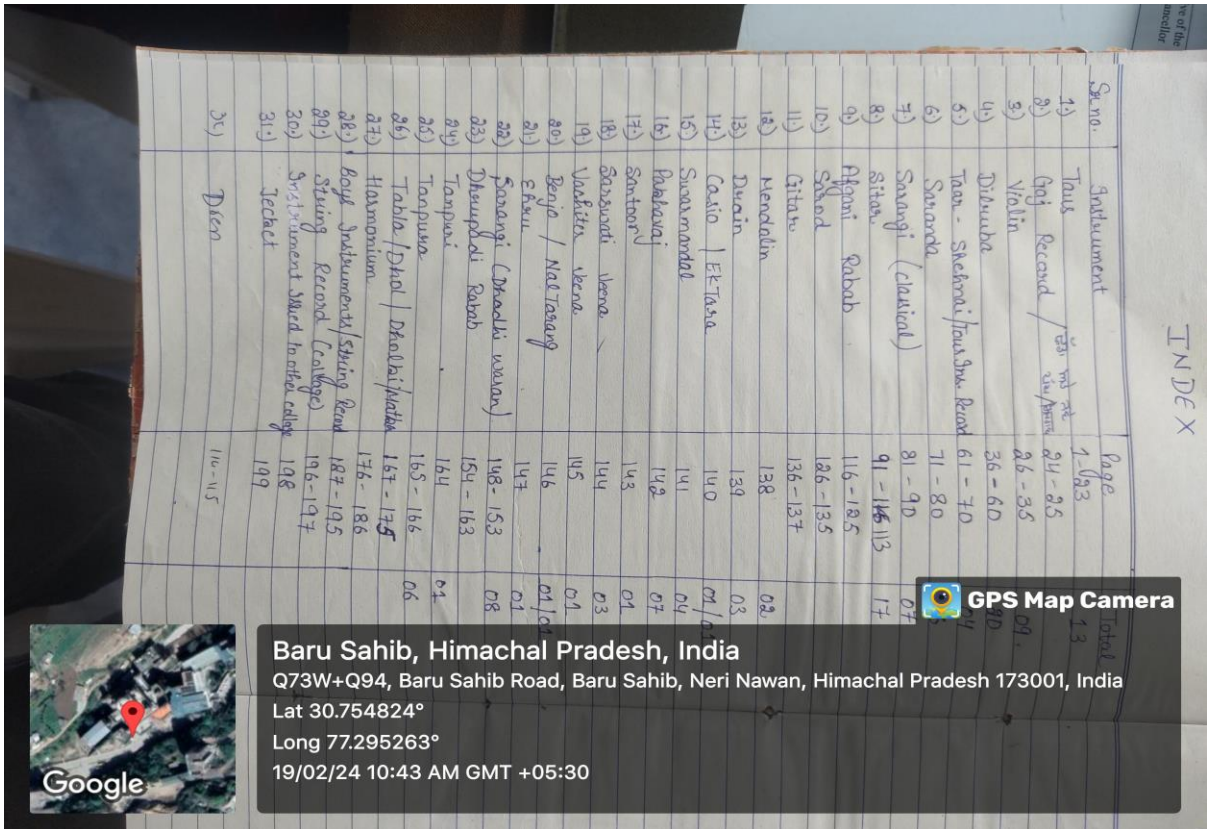 ve of the
ancellor
INDEX
Sr. no. Instrument Page Total
1.) Taus 1-23 13
2.) Gij Record / 24-25
3.) Violin 26-35 09.
4.) Dilruba 36-60 80
5.) Taar - Shehnai/Taus Ins. Record 61-70 04
6.) Saranda 71-80
7.) Sarangi (classical) 81-90 07
8.) Sitar 91-113 17
9.) Afgani Rabab 116-125
10.) Sarod 126-135
11.) Gitar 136-137
12.) Mendalin 138 02
13.) Dwain 139 03
14.) Casio / Ek Tara 140 01/01
15.) Swarmandal 141 04
16.) Pakhavaj 142 07
17.) Santoor 143 01
18.) Sarsvati Veena 144 03
19.) Vachiter Veena 145 01
20.) Benjo / Nal Tarang 146 01/01
21.) Esraj 147 01
22.) Sarangi (Dhadhi waran) 148-153 08
23.) Dhrupadi Rabab 154-163
24.) Tanpuri 164 01
25.) Tanpura 165-166
26.) Tabla / Dhol / Dholki/ 167-175 06
27.) Harmonium 176-186
28.) Instruments/String Record 187-195
29.) String Record (College) 196-197
30.) Instrument Issued to other college 198
31.) 199
32) 114-115
GPS Map Camera
Baru Sahib, Himachal Pradesh, India
Q73W+Q94, Baru Sahib Road, Baru Sahib, Neri Nawan, Himachal Pradesh 173001, India
Lat 30.754824°
Long 77.295263°
19/02/24 10:43 AM GMT +05:30
Google